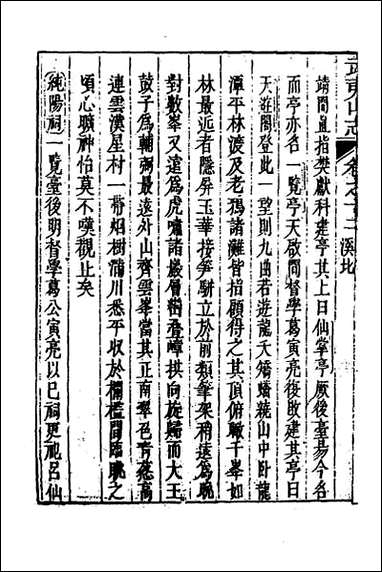 武夷山志 卷之十二 溪北
靖間直指樊獻科建亭其上曰仙掌亭厥後臺易今名
而亭亦名一覽亭天啟間督學葛寅亮復改建其亭曰
天遊閣登此一望則九曲若遊龍夭矯繞山中卧龍
潭平林渡及老鴉諸灘皆招顧得之其頂俯瞰千峯如
林最近者隱屏玉華接笋駢立於前類筆架稍遠為晚
對數峯又遠為虎嘯諸巖層巒叠嶂拱向旋歸而大王
鼓子為輔弼最遠外山齊雲峯當其正南翠色青葱高
連雲漢星村一帶烟樹蒲川悉平收於欄檻間臨眺之
頃心曠神怡莫不嘆觀止矣
純陽祠一覽臺後明督學葛公寅亮以已祠更祀呂仙